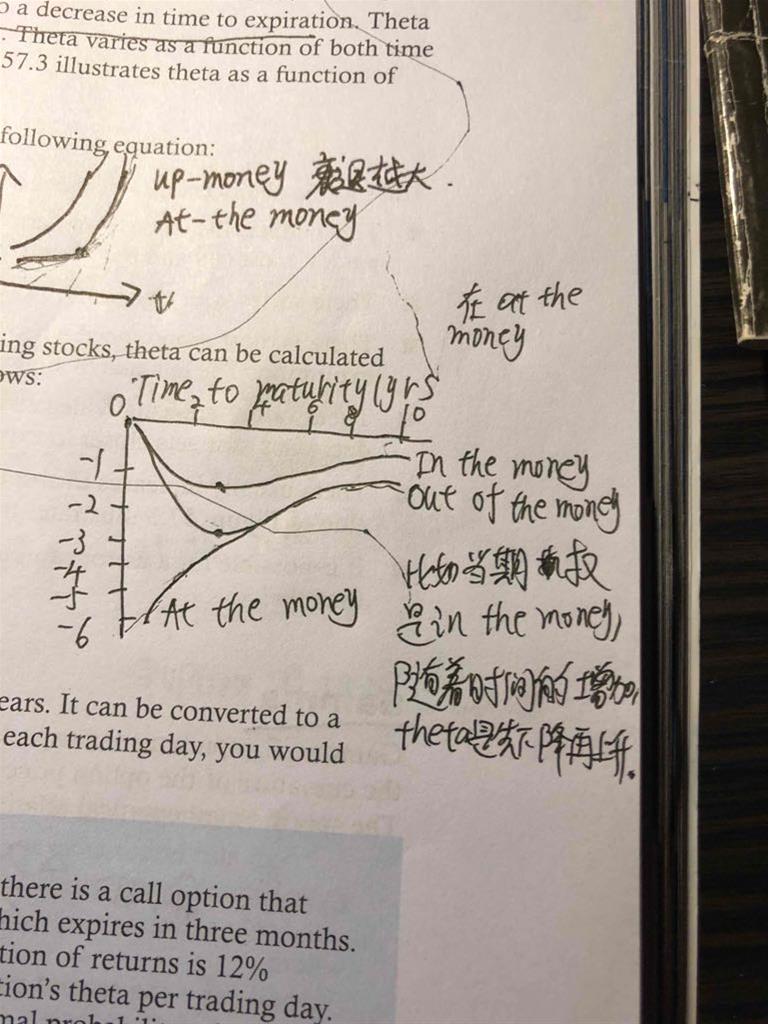 o a decrease in time to expiration. Theta
. Theta varies as a function of both time
57.3 illustrates theta as a function of
following equation:
up-money 衰退越大.
At-the money
t
在 at the
money
ing stocks, theta can be calculated
ows:
Time to maturity (yrs
0 2 4 6 8 10
-1
-2
-3
-4
-5
-6
In the money
Out of the money
At the money
比如当期权
是in the money,
随着时间的增加,
theta是先下降再上升.
ears. It can be converted to a
each trading day, you would
there is a call option that
hich expires in three months.
tion of returns is 12%
tion's theta per trading day.